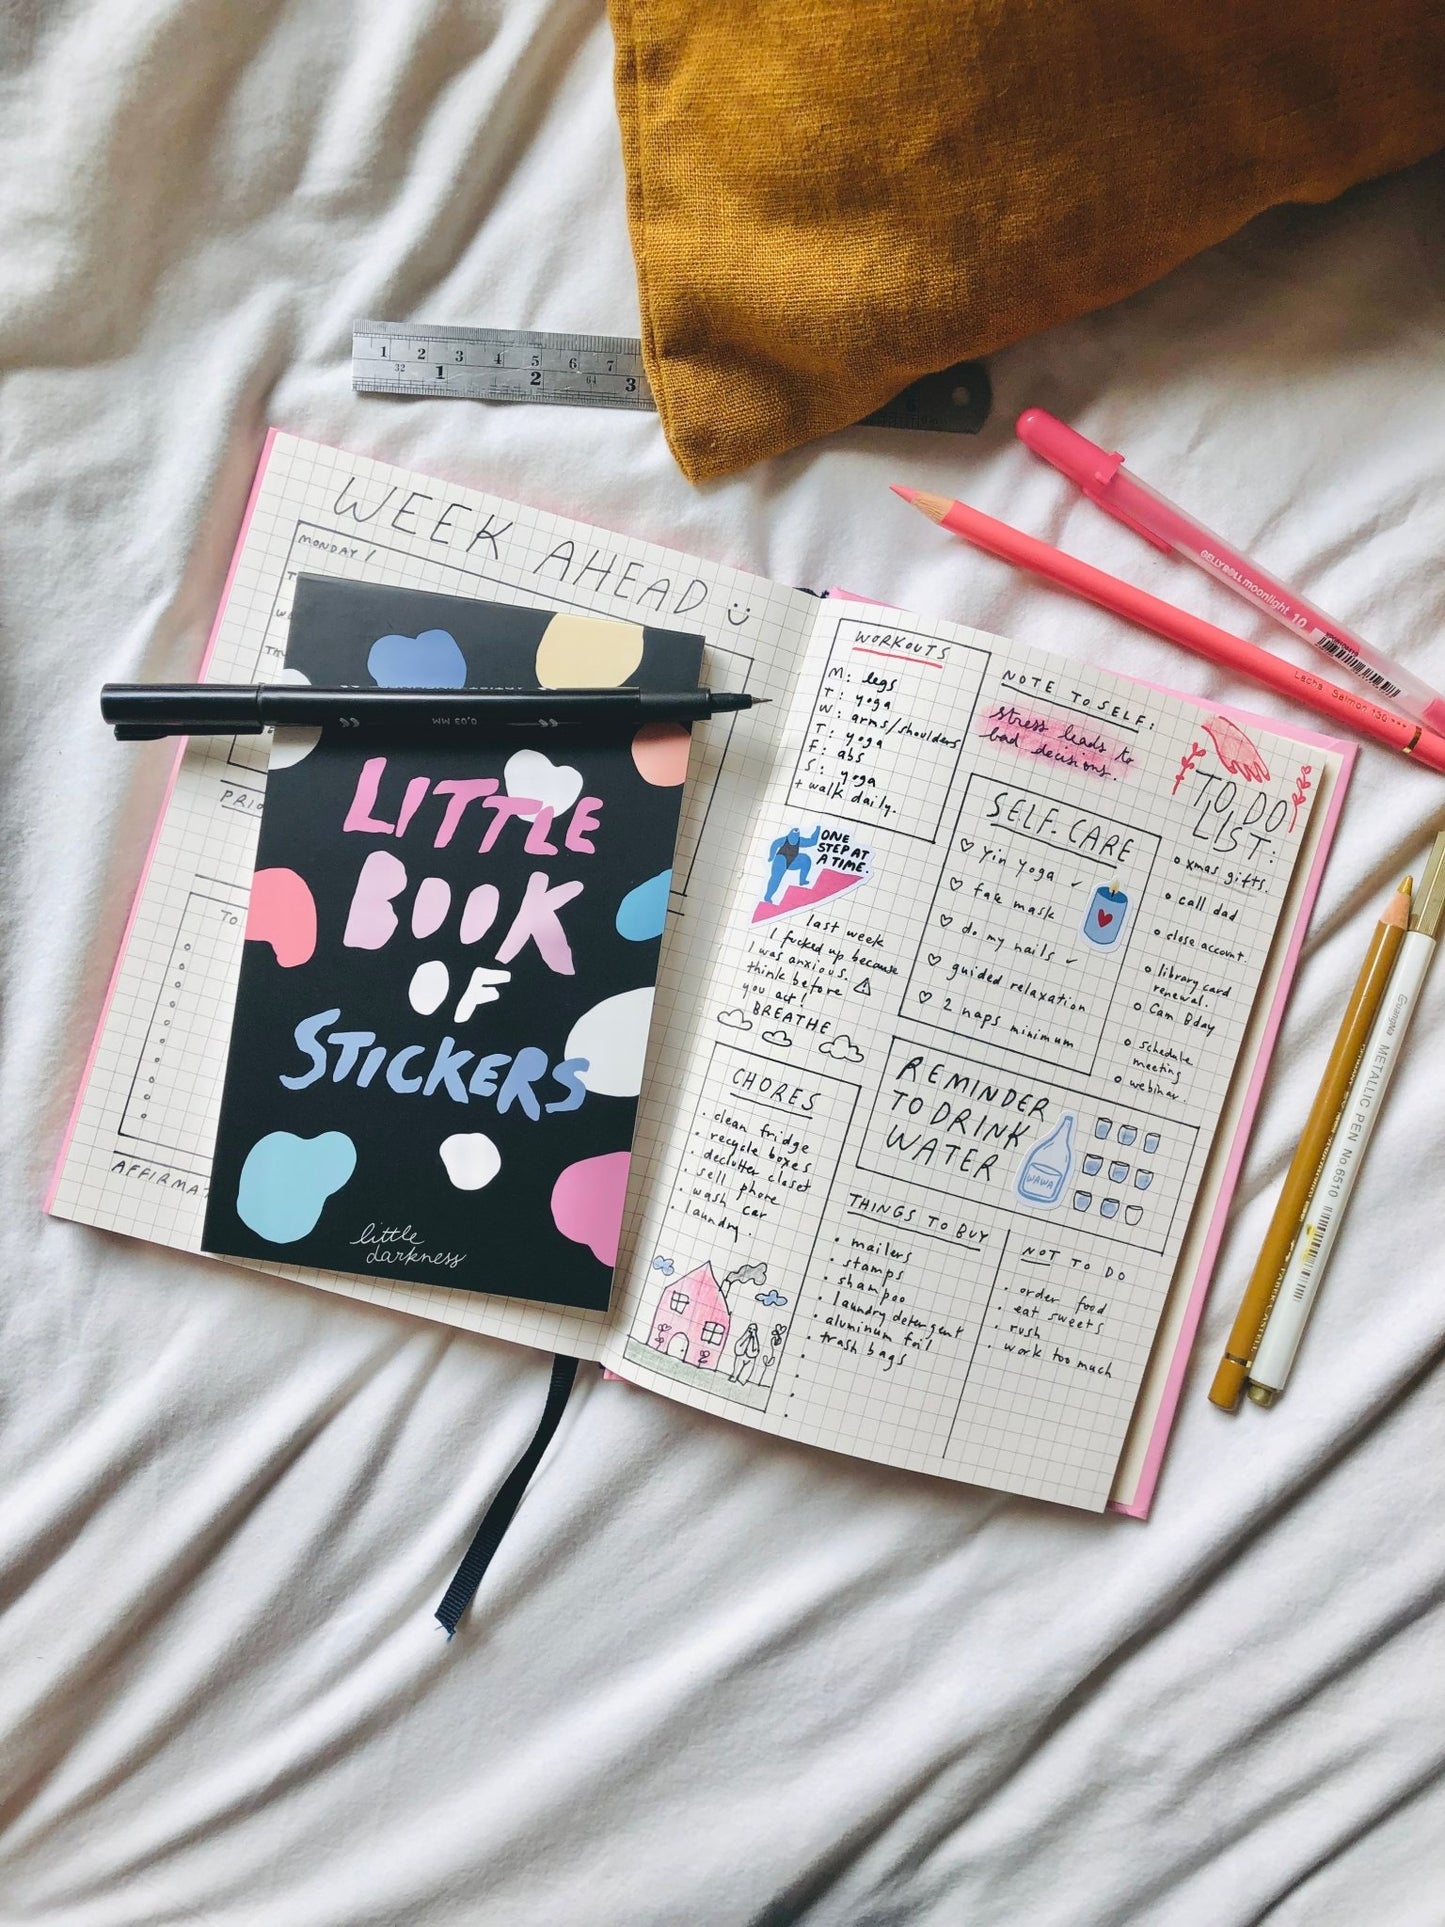 1 2 3 4 5 6 7
32 64
1 2 3
6
WEEK AHEAD
MONDAY!
T
W
TH
PRIO
TO
AFFIRMAT
0,03 MM
LITTLE
BOOK
OF
STICKERS
little
darkness
WORKOUTS
M: legs
T: yoga
W: arms/shoulders
T: yoga
F: abs
S: yoga
+ walk daily.
ONE
STEP AT
A TIME.
last week
I fucked up because
I was anxious.
think before
you act!
BREATHE
CHORES
• clean fridge
• recycle boxes
• declutter closet
• sell phone
• wash car
• laundry.
NOTE TO SELF:
stress leads to
bad decisions.
SELF. CARE
♡ Yin yoga ✓
♡ face mask
♡ do my nails ✓
♡ guided relaxation
♡ 2 naps minimum
REMINDER
TO DRINK
WATER
WAWA
THINGS TO BUY
• mailers
• stamps
• shampoo
• laundry detergent
• aluminum foil
• trash bags
NOT TO DO
• order food
• eat sweets
• rush
• work too much
TO DO
LIST:
o xmas gifts.
o call dad
o close account.
o library card
renewal.
o Cam Bday
o schedule
meeting
o webinar
GELLY ROLL moonlight 10
Lachs Salmon 130
GuangNa METALLIC PEN No.6510
FABER-CASTELL